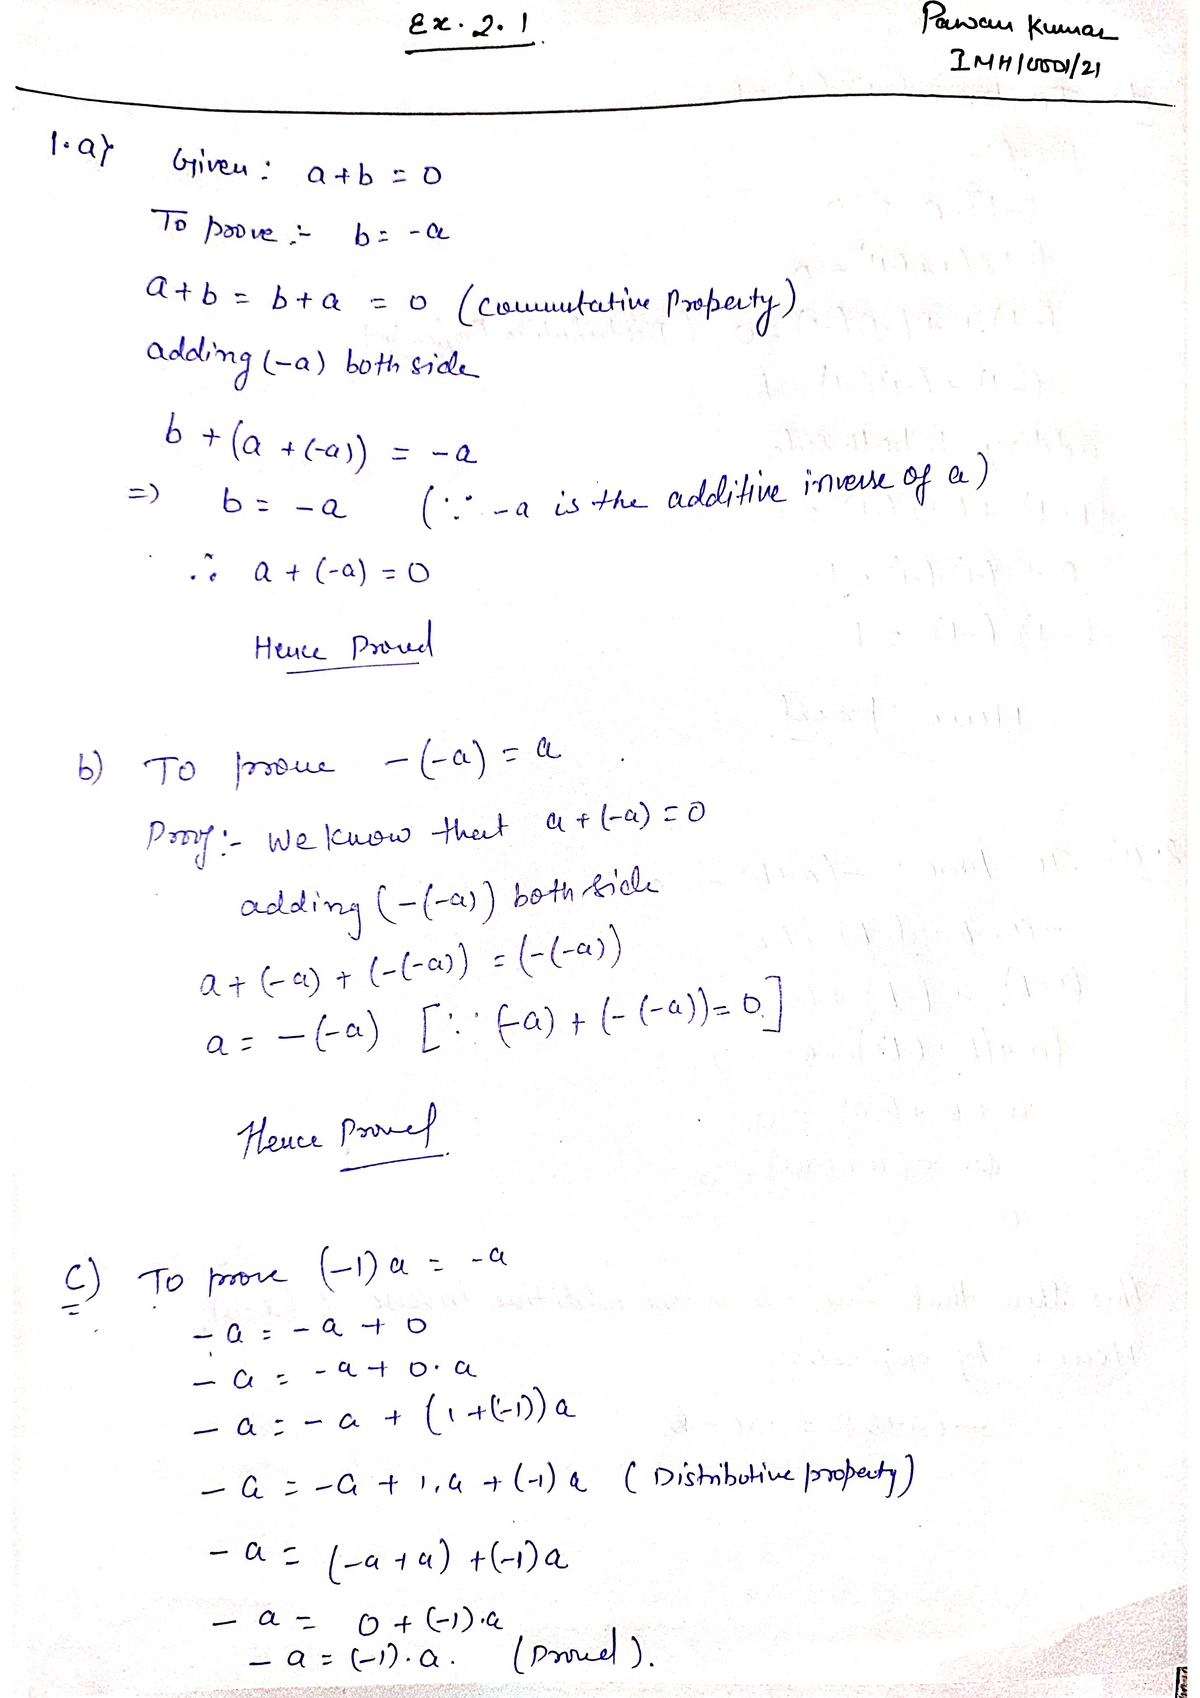 Ex. 2.1
Pawan Kumar
1.a) Given: a+b = 0
To prove :- b = -a
a+b = b+a = 0 (Commutative Property)
adding (-a) both side
b + (a + (-a)) = -a
=) b = -a (∵ -a is the additive inverse of a)
∴ a + (-a) = 0
Hence Proved
b) To prove -(-a) = a
Proof:- We know that a + (-a) = 0
adding (-(-a)) both side
a + (-a) + (-(-a)) = (-(-a))
a = -(-a) [∵ (-a) + (-(-a)) = 0.]
Hence Proved.
c) To prove (-1) a = -a
-a = -a + 0
-a = -a + 0.a
-a = -a + (1+(-1)) a
-a = -a + 1.a + (-1) a (Distributive property)
-a = (-a+a) + (-1) a
-a = 0 + (-1).a
-a = (-1).a. (Proved).